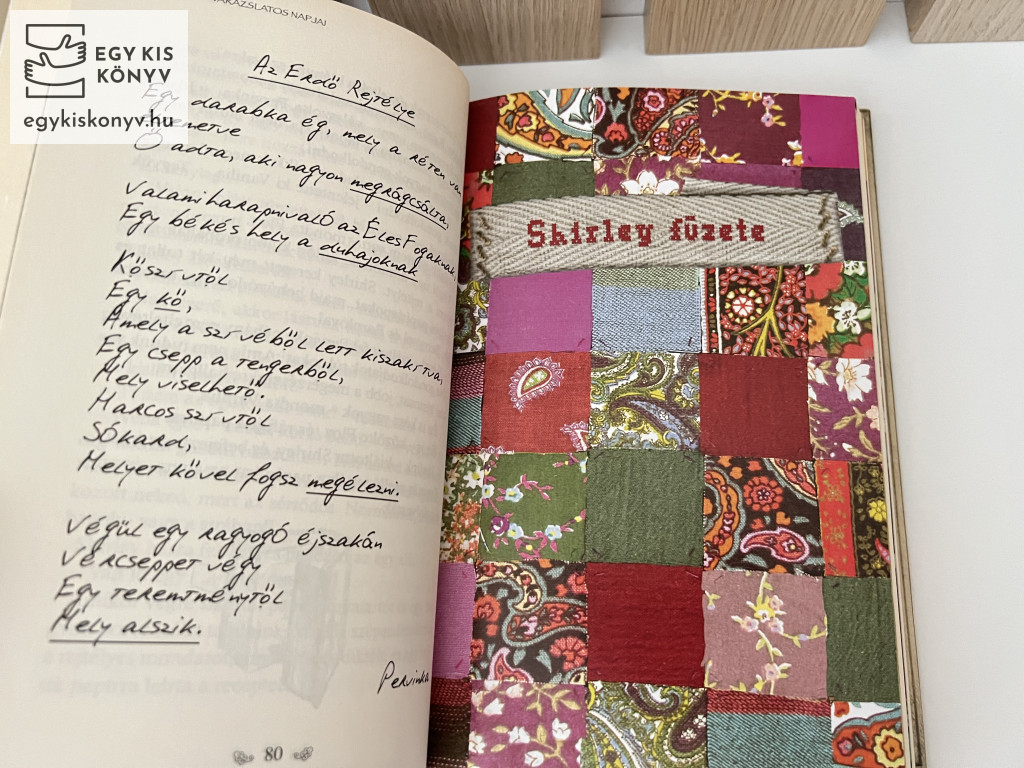 VARÁZSLATOS NAPJAI
EGY KIS
KÖNYV
egykiskonyv.hu
Az Erdő Rejtélye
Egy darabka ég, mely a réten van
Ő adta, aki nagyon megrágcsálta,
Valami harapnivaló az Éles Fogaknak
Egy békés hely a duhajoknak
Kőszívtől
Egy kő,
Amely a szívéből lett kiszakítva,
Egy csepp a tengerből,
Mely viselhető.
Marcos szívtől
Sókard,
Melyet kővel fogsz megélezni.
Végül egy ragyogó éjszakán
Vércseppet végy
Egy teremtménytől
Mely alszik.
Pervinka
80
Shirley füzete